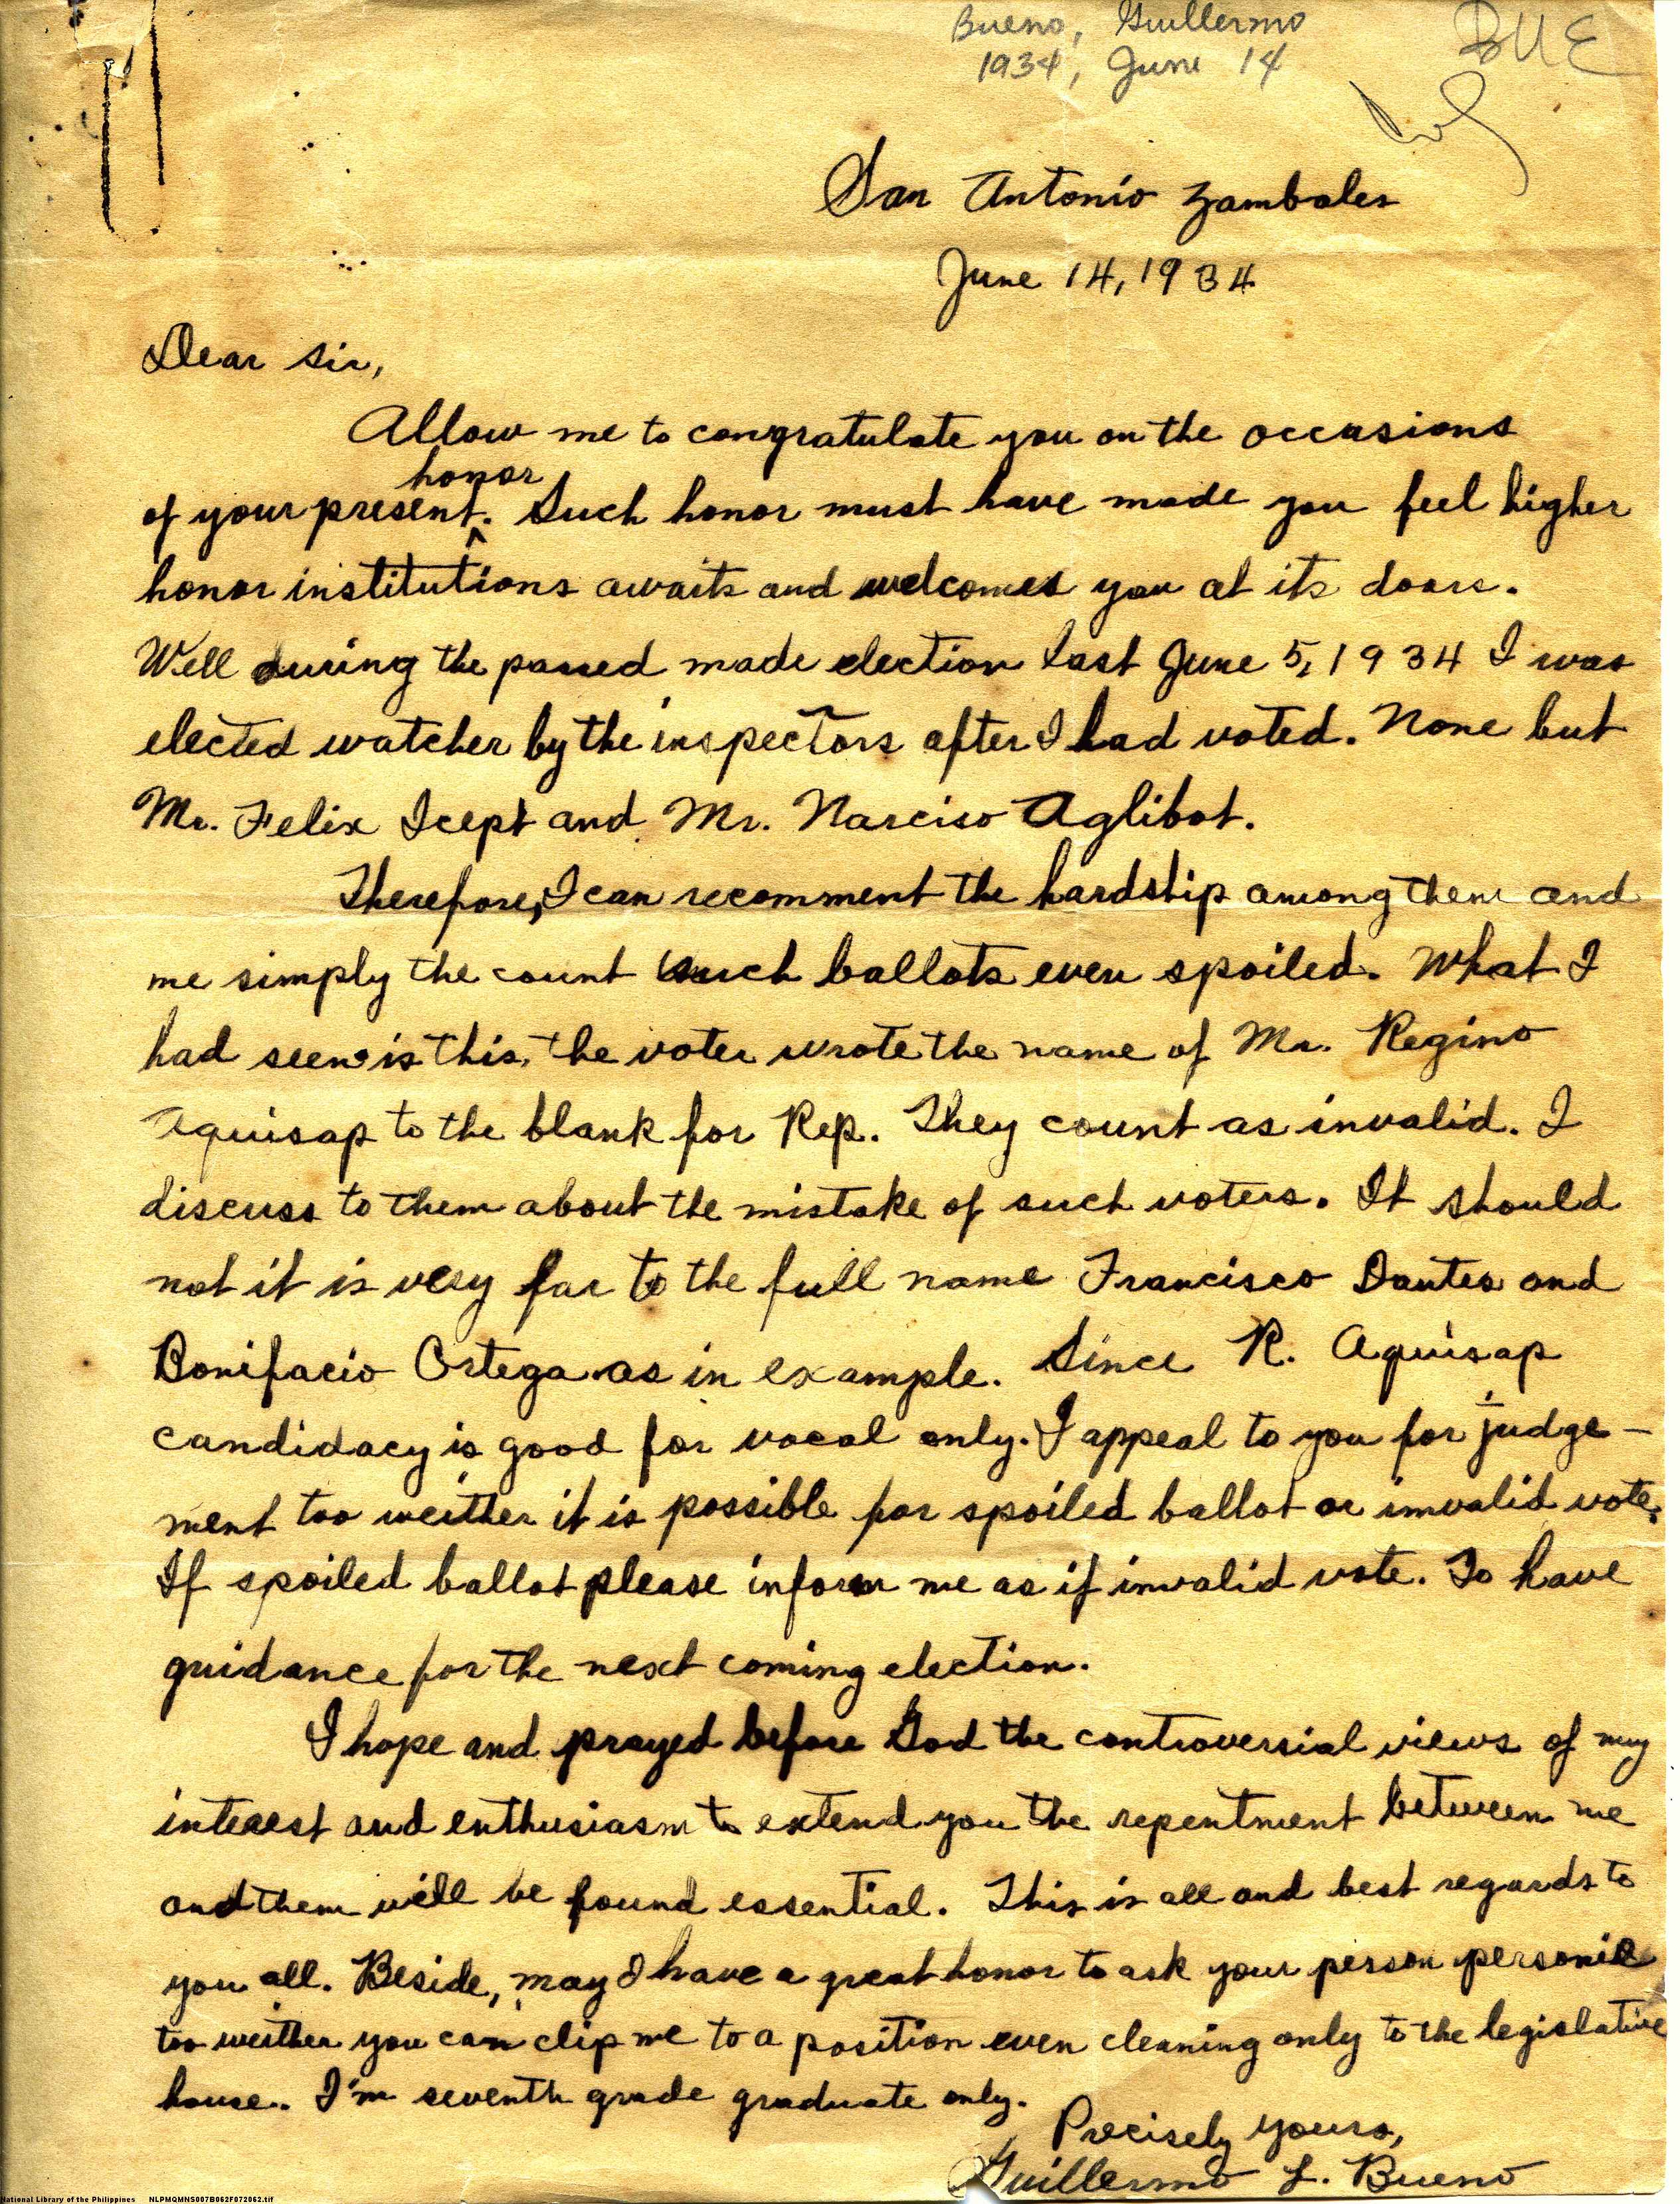 Bueno, Guillermo
1934, June 14
BUE
San Antonio Zambales
June 14, 1934
Dear Sir,
Allow me to congratulate you on the occasions
honor
of your present. Such honor must have made you feel higher
honor institutions awaits and welcomes you at its doors.
Well during the passed made election last June 5, 1934 I was
elected watcher by the inspectors after I had voted. None but
Mr. Felix Icept and Mr. Narciso Aglibot.
Therefore, I can recomment the hardship among them and
me simply the count such ballots even spoiled. What I
had seen is this, the voter wrote the name of Mr. Regino
Aquisap to the blank for Rep. They count as invalid. I
discuss to them about the mistake of such voters. It should
not it is very far to the full name Francisco Dantes and
Bonifacio Ortega as in example. Since R. Aquisap
candidacy is good for vocal only. I appeal to you for judge-
ment too weither it is possible for spoiled ballot or invalid vote.
If spoiled ballot please inform me as if invalid vote. To have
guidance for the next coming election.
I hope and prayed before God the controversial views of my
interest and enthusiasm to extend you the repentment between me
and them will be found essential. This is all and best regards to
you all. Beside, may I have a great honor to ask your person personil
too weither you can clip me to a position even cleaning only to the legislative
house. I'm seventh grade graduate only.
Precisely yours,
Guillermo L. Bueno
National Library of the Philippines NLPMQMNS007B062F072062.tif